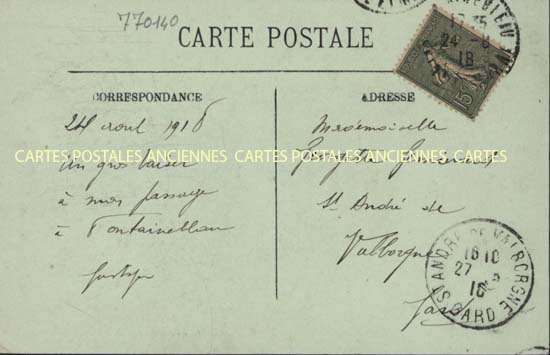 770140
CARTE POSTALE
17 35
24 - 8
18
15
CORRESPONDANCE
ADRESSE
24 aout 1918
Mademoiselle
CARTES POSTALES ANCIENNES CARTES POSTALES ANCIENNES
un gros baiser
à mon passage
St André de
à Fontainebleau
Valborgne
Gard
ST ANDRÉ DE VALBORGNE
18 10
27 - 8
18
GARD